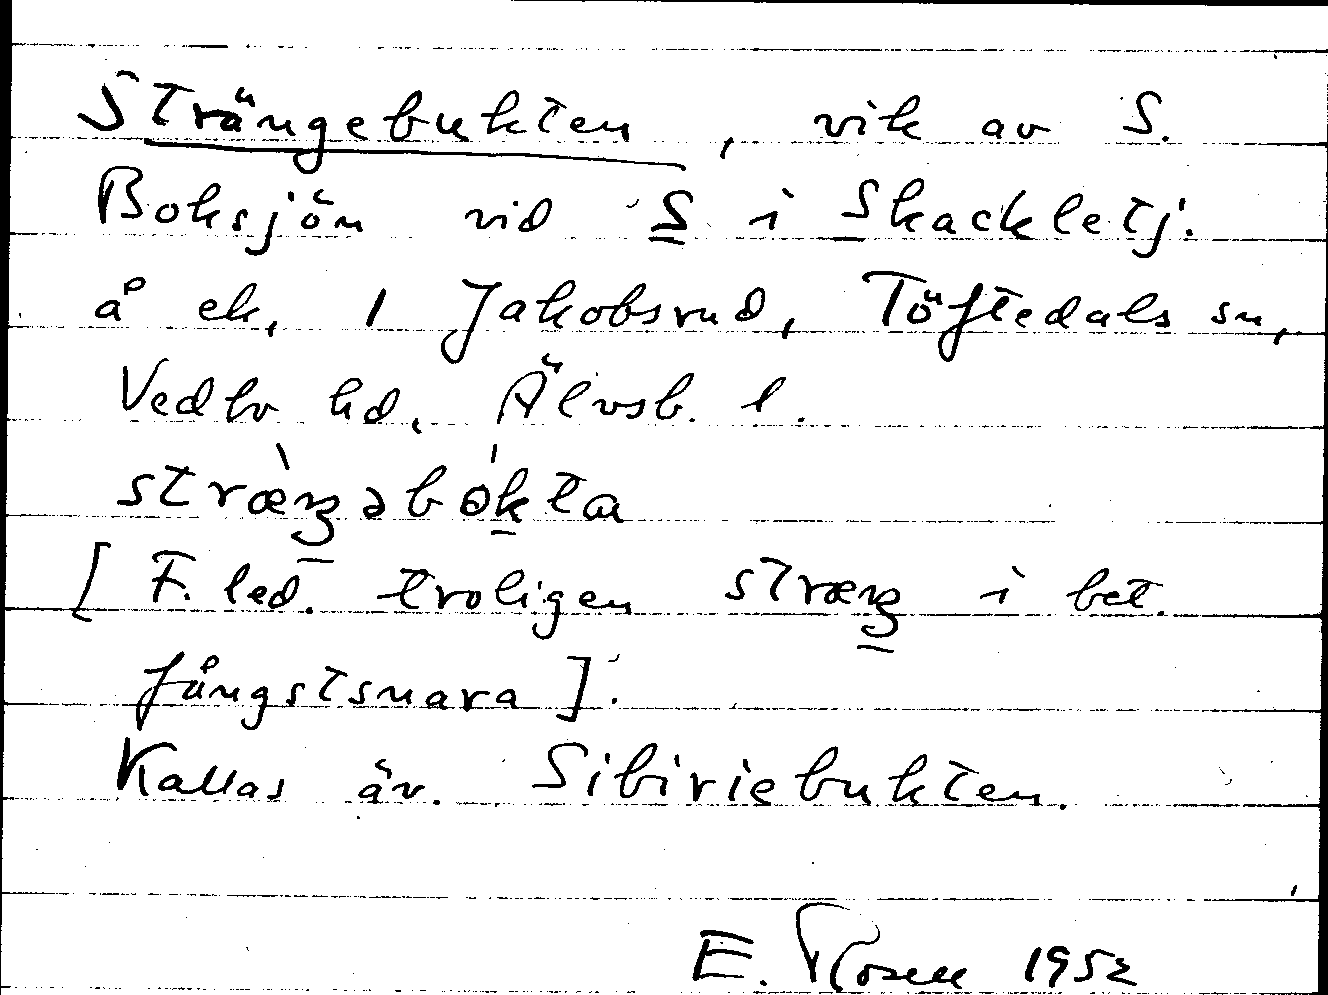 Strängebukten, vik av S.
Boksjön vid S i Skackletj.
å ek. 1 Jakobsrud, Töftedals sn,
Vedbo hd, Älvsb. l.
stræ̀ŋəbókta
[F. led. troligen stræŋ i bet.
fångstsnara].
Kallas äv. Sibiriebukten.
E. Rosell 1952